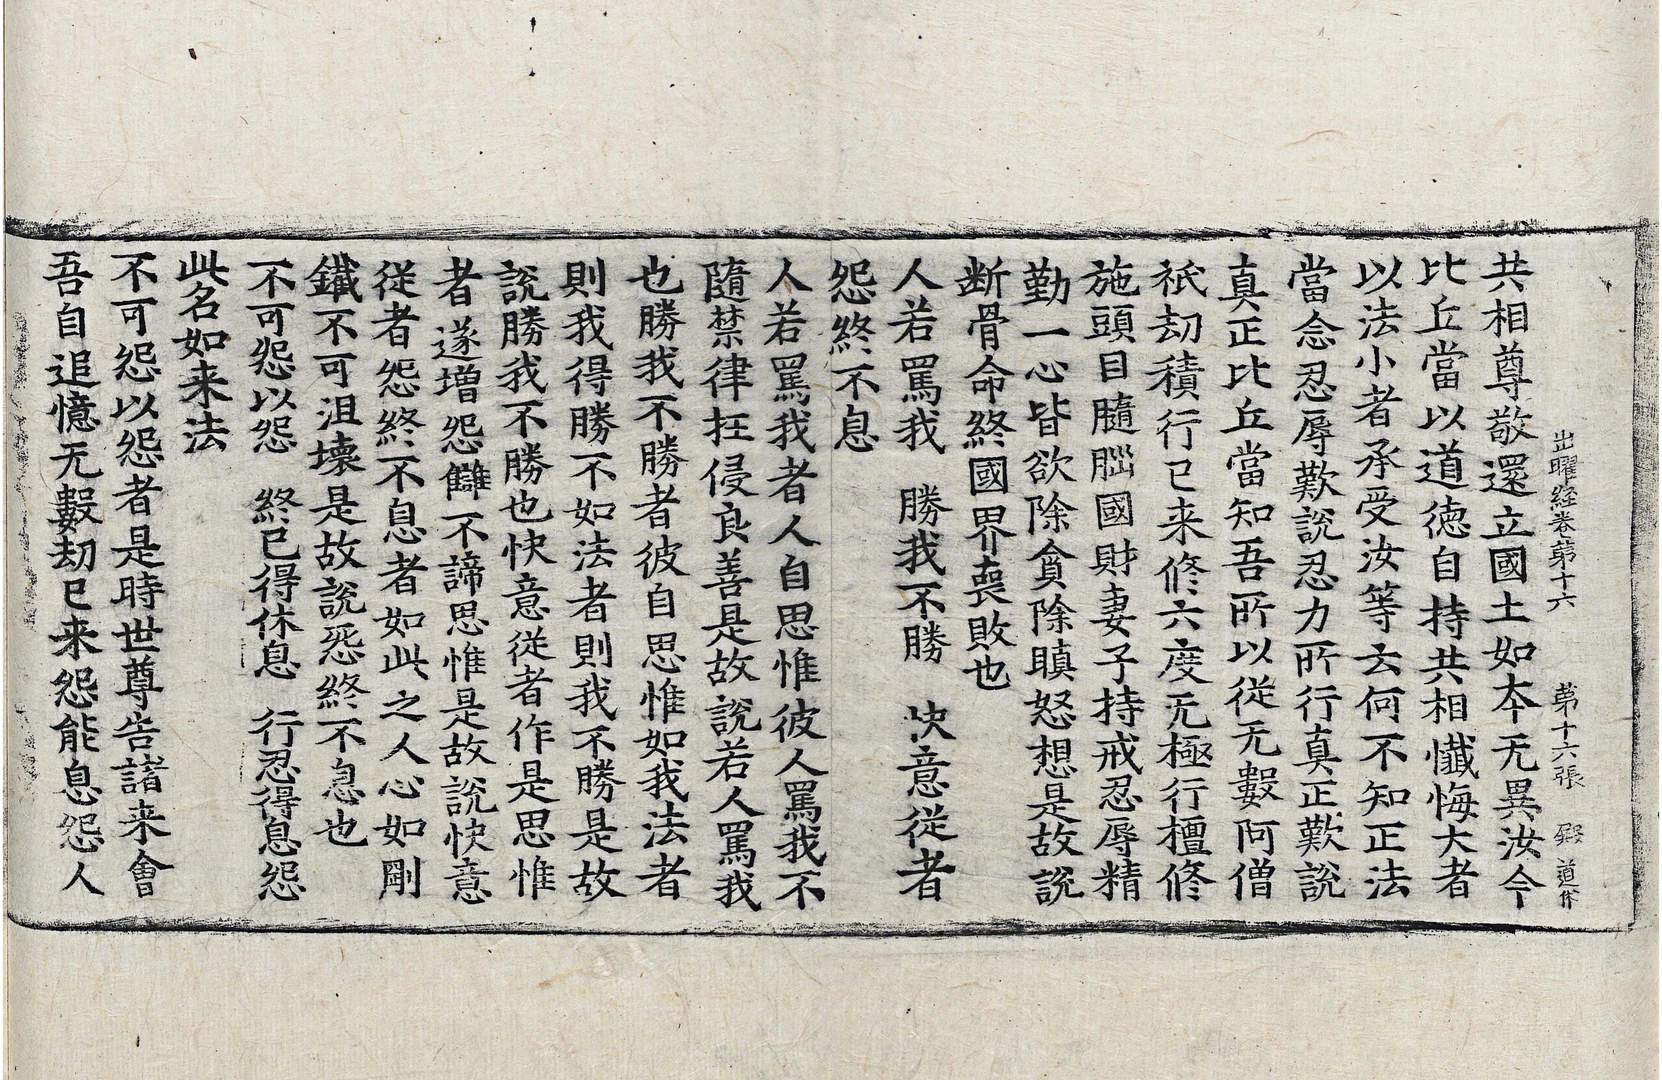 出曜経卷第十六　第十六張　殿　道休
共相尊敬還立國土如夲无異汝今
比丘當以道德自持共相懺悔大者
以法小者承受汝等云何不知正法
當念忍辱歎說忍力所行真正歎說
真正比丘當知吾所以從无數阿僧
祇劫積行已来修六度无極行檀修
施頭目髓腦國財妻子持戒忍辱精
勤一心皆欲除貪除瞋怒想是故說
断骨命終國界喪敗也
人若罵我　勝我不勝　快意從者
怨終不息
人若罵我者人自思惟彼人罵我不
隨禁律抂侵良善是故說若人罵我
也勝我不勝者彼自思惟如我法者
則我得勝不如法者則我不勝是故
說勝我不勝也快意從者作是思惟
者遂增怨讎不諦思惟是故說快意
從者怨終不息者如此之人心如剛
鐵不可沮壊是故說怨終不息也
不可怨以怨　終已得休息　行忍得息怨
此名如来法
不可怨以怨者是時世尊告諸来會
吾自追憶无數劫已来怨能息怨人